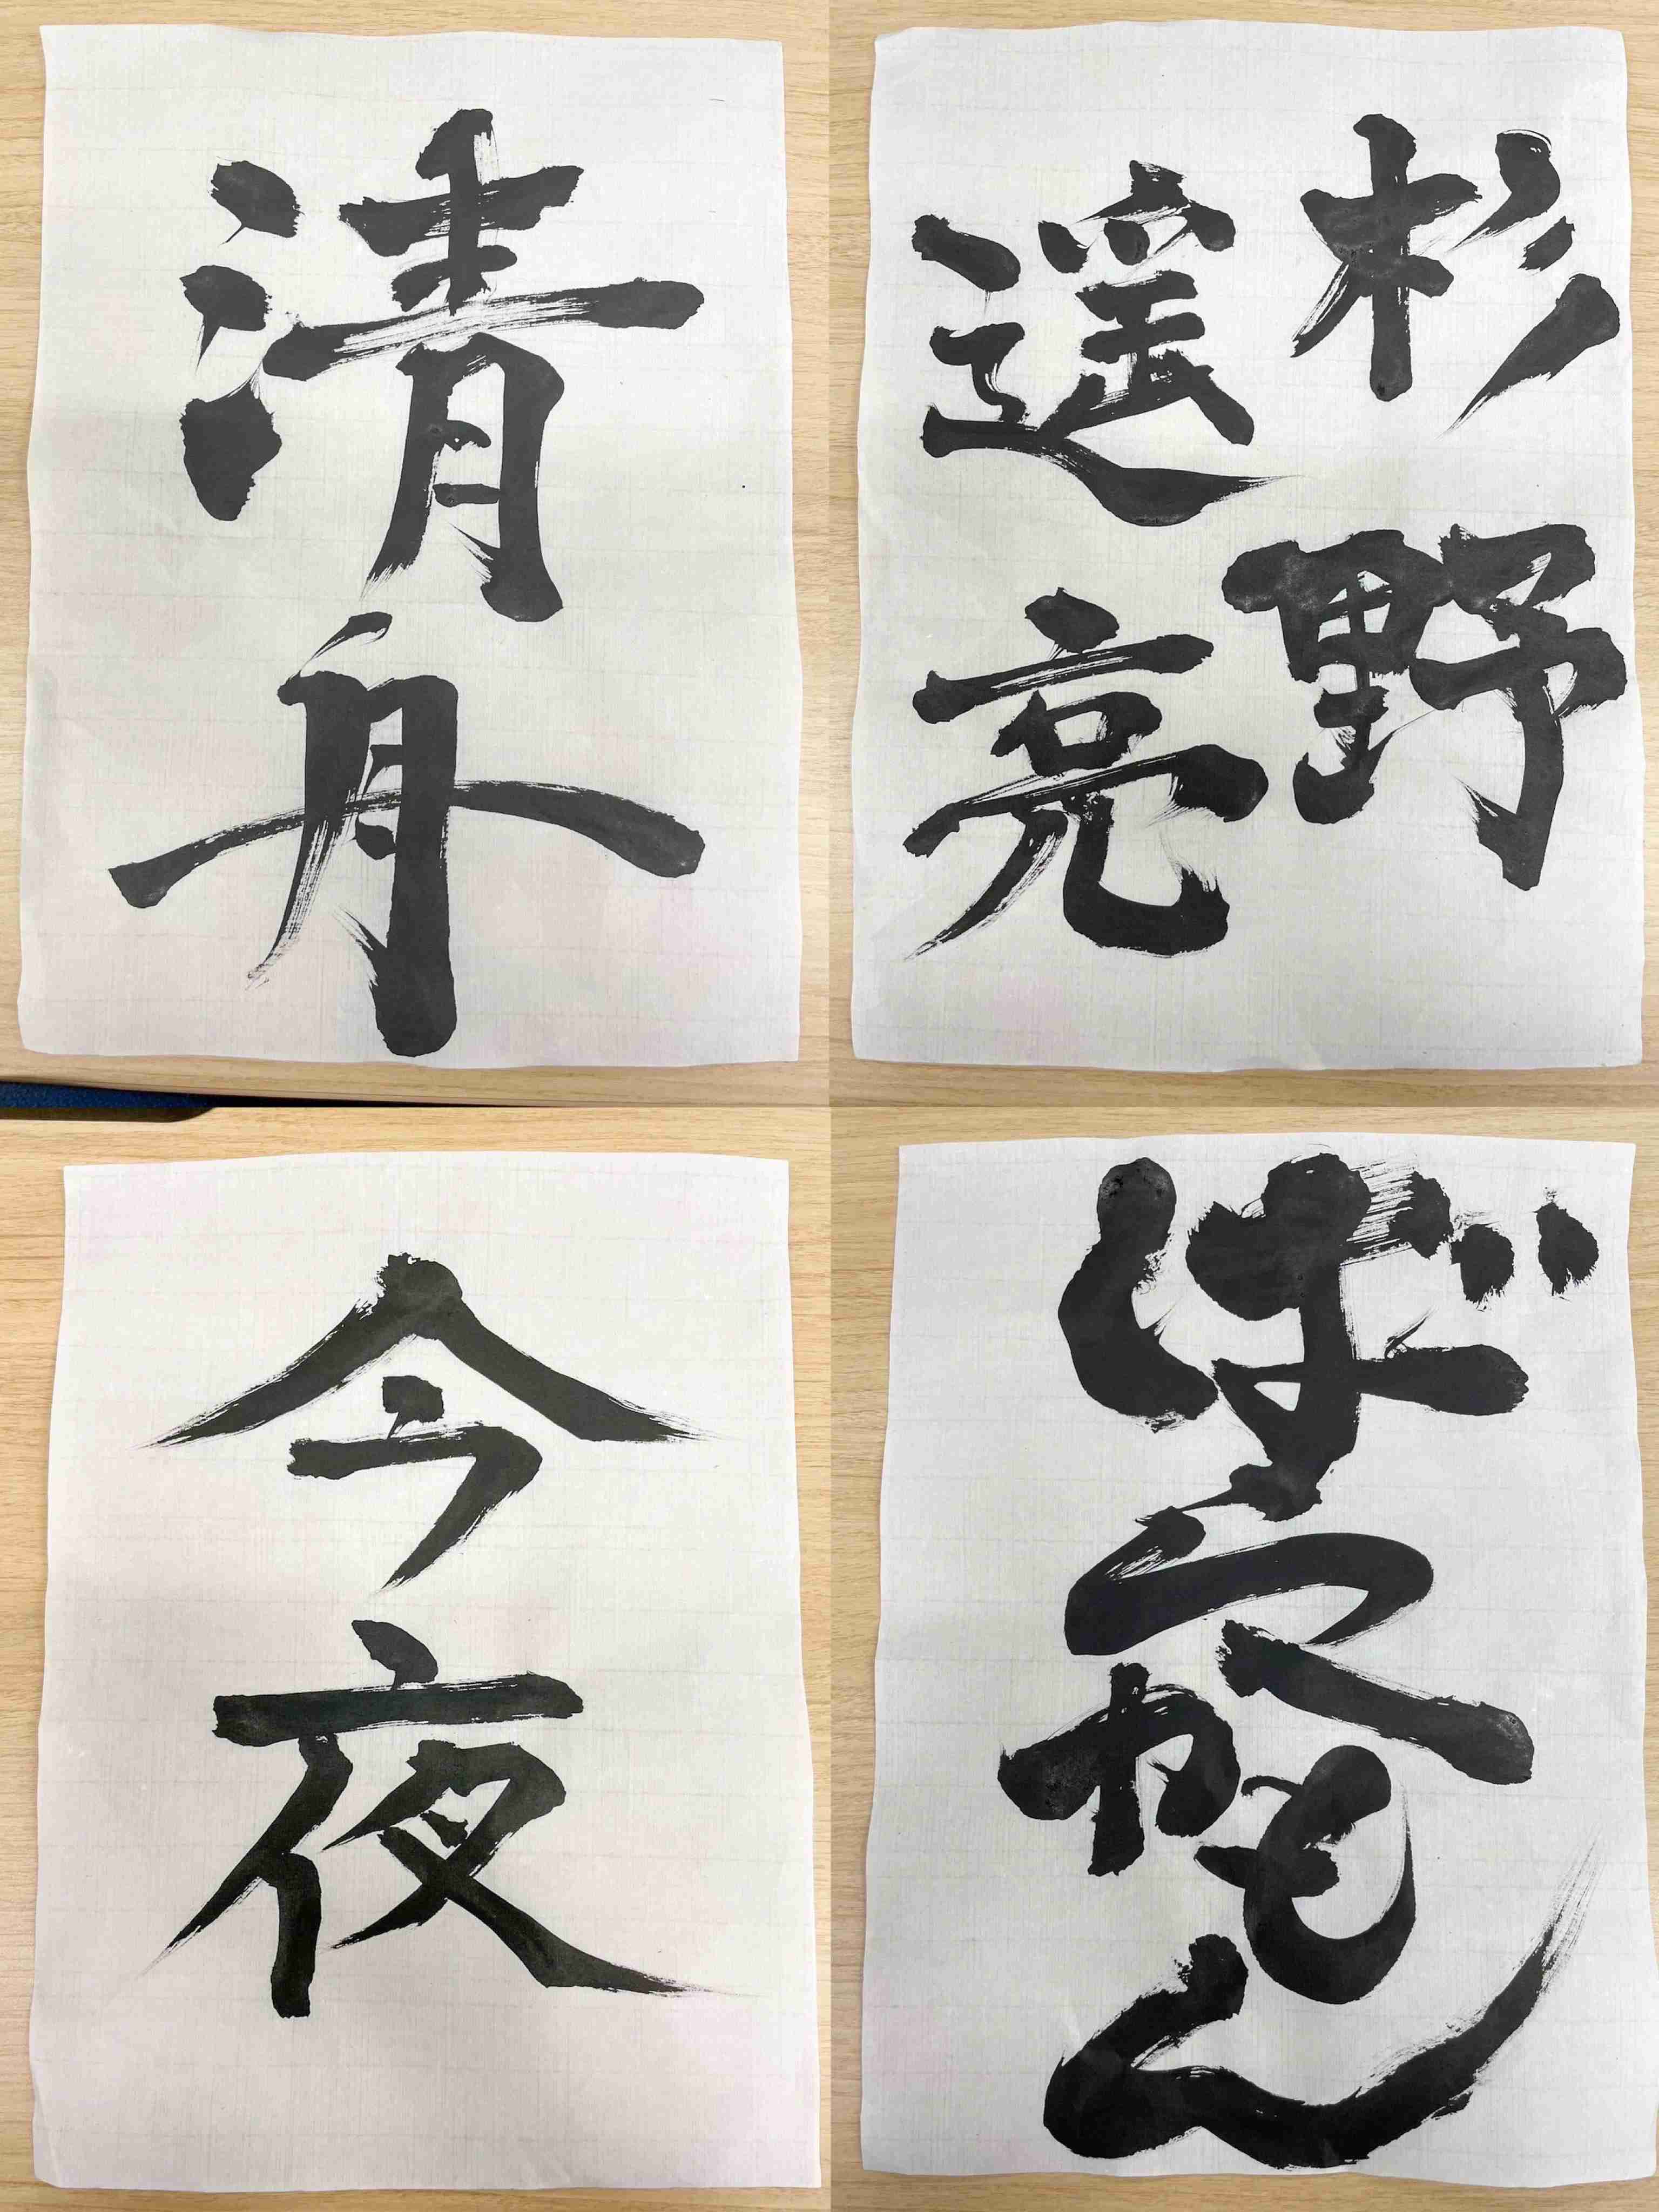 清舟
杉野
遥亮
今夜
ばらかもん